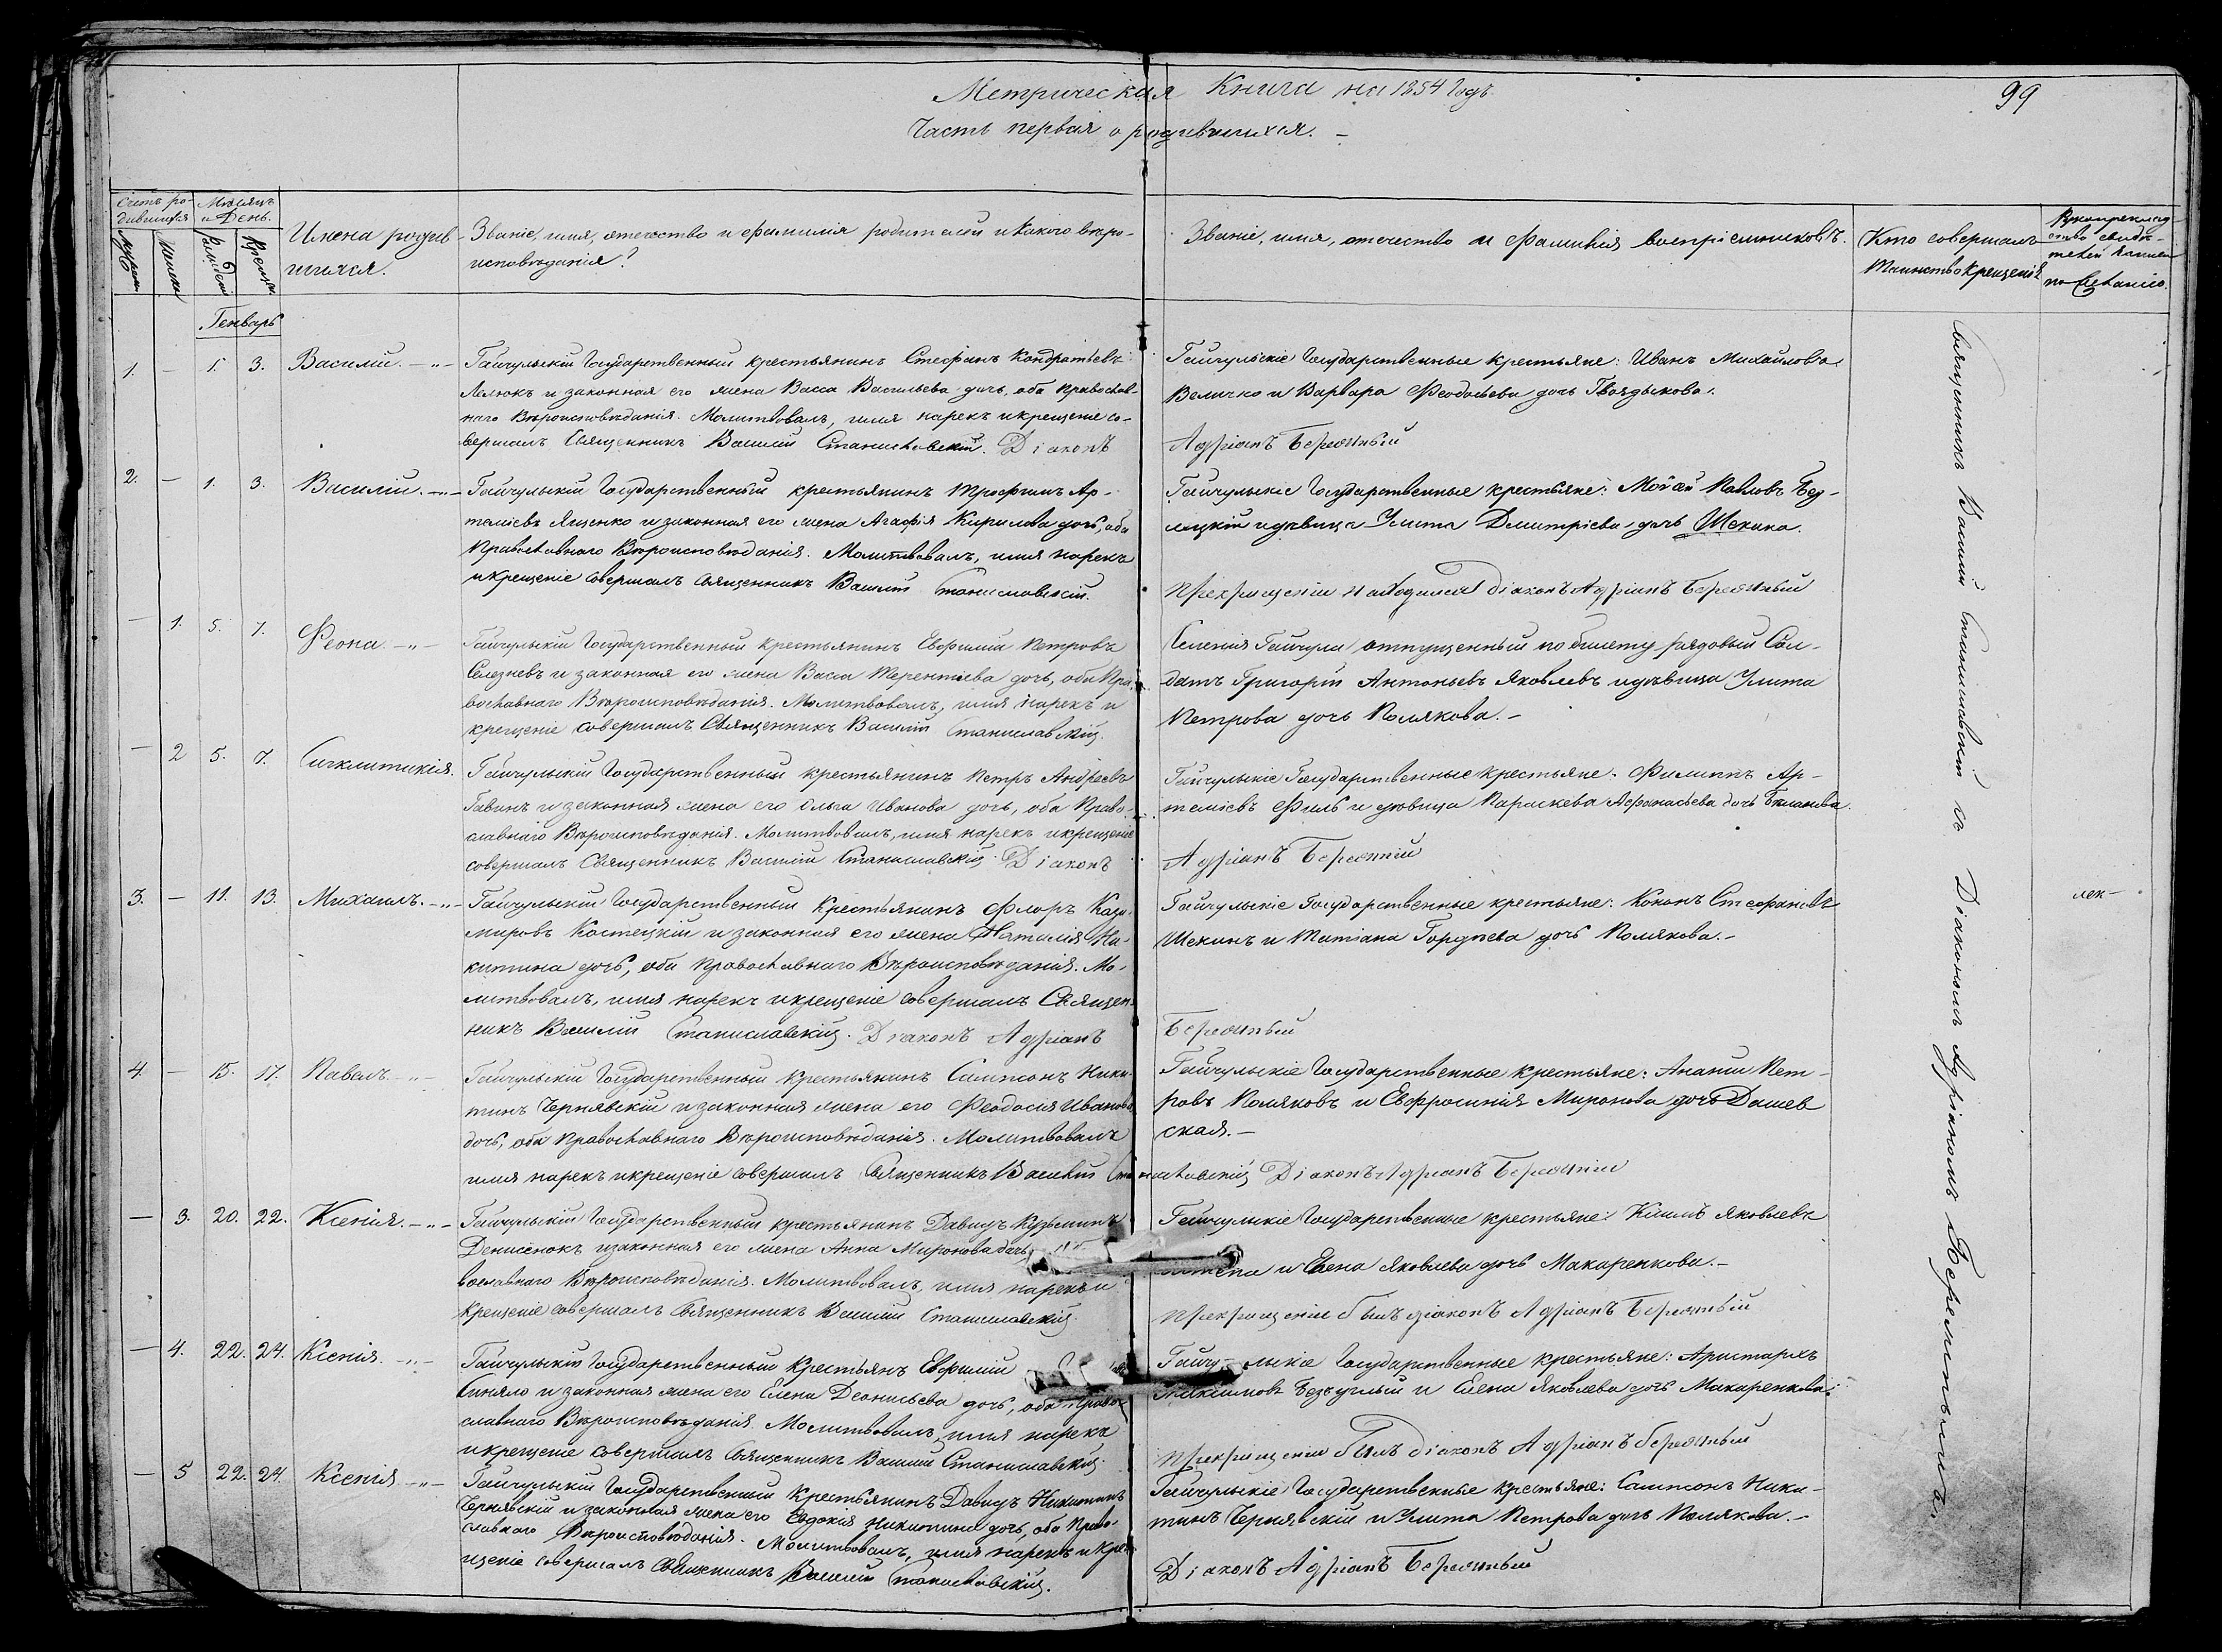 Метрическая Книга на 1854 Годъ.
99
Часть первая о родившихся. –
Счетъ ро-
дившихся
Мѣсяцъ
и День.
Имена родив-
шихся.
Званіе, имя, отечество и фамилія родителей и какого вѣро-
исповѣданія?
Званіе, имя, отечество и фамилія воспріемниковъ.
Кто совершалъ
Таинство крещенія
Генварь
1. – 1. 3. Василій. –"–
Гайчульскій Государственный крестьянинъ Стефанъ Кондратьевъ
Лелюкъ и законная его жена Васса Васильева дочь, оба православ-
наго Вѣроисповѣданія. Молитвовалъ, имя нарекъ и крещеніе со-
вершалъ Священникъ Василій Станиславскій. Діаконъ
Гайчульскіе Государственные крестьяне: Иванъ Михайловъ
Величко и Варвара Феодосьева дочь Гвоздыкова.
Адріанъ
2. – 1. 3. Василій. –"–
Гайчульскій Государственный крестьянинъ Трофимъ Ар-
теміевъ Ященко и законная его жена Агафія Кирилова дочь, оба
Православнаго Вѣроисповѣданія. Молитвовалъ, имя нарекъ
и крещеніе совершалъ Священникъ Василій Станиславскій.
Гайчульскіе Государственные крестьяне: Павловъ
и дѣвица Улита Дмитріева дочь Шекина.
При крещеніи находился діаконъ Адріанъ
– 1. 5. 7. Феона. –"–
Гайчульскій Государственный крестьянинъ Евфимій Петровъ
Селезневъ и законная его жена Васса Терентіева дочь, оба Пра-
вославнаго Вѣроисповѣданія. Молитвовалъ, имя нарекъ и
крещеніе совершалъ Священникъ Василій Станиславскій.
Селенія Гайчула отпущенный по билету рядовый Сол-
датъ Григорій Антоньевъ Яковлевъ и дѣвица Улита
Петрова дочь Полякова. –
– 2 5. 7. Сигклитикія.
Гайчульскій Государственный крестьянинъ Петръ Андреевъ
Гавинъ и законная жена его Ольга Иванова дочь, оба Право-
славнаго Вѣроисповѣданія. Молитвовалъ, имя нарекъ и крещеніе
совершалъ Священникъ Василій Станиславскій. Діаконъ
Гайчульскіе Государственные крестьяне: Филиппъ Ар-
теміевъ Филь и дѣвица Параскева Афанасьева дочь
Адріанъ
3. – 11. 13. Михаилъ. –"–
Гайчульскій Государственный Крестьянинъ Флоръ Кази-
мировъ Костецкій и законная его жена Наталія Ни-
китина дочь, оба православнаго Вѣроисповѣданія. Мо-
литвовалъ, имя нарекъ и крещеніе совершалъ Священ-
никъ Василій Станиславскій. Діаконъ Адріанъ
Гайчульскіе Государственные крестьяне: Кононъ Стефановъ
Шекинъ и Татіана Гордѣева дочь Полякова. –
4. – 15. 17. Павелъ. –"–
Гайчульскій Государственный крестьянинъ Сампсонъ Ники-
тинъ Чернявскій и законная жена его Феодосія Иванова
дочь, оба православнаго Вѣроисповѣданія. Молитвовалъ
имя нарекъ и крещеніе совершалъ Священникъ Василій Станиславскій Діаконъ Адріанъ
Гайчульскіе Государственные крестьяне: Ананій Пет-
ровъ Поляковъ и Евфросинія Миронова дочь Дашев
ская. –
– 3. 20. 22. Ксенія. –"–
Гайчульскій Государственный крестьянинъ Давидъ Кузьминъ
Денисенокъ и законная его жена Анна Миронова дочь,
вославнаго Вѣроисповѣданія. Молитвовалъ, имя нарекъ и
Крещеніе совершалъ Священникъ Василій Станиславскій.
Гайчульскіе Государственные крестьяне: Климъ Яковлевъ
и Елена Яковлева дочь Макаренкова. –
При крещеніи былъ діаконъ Адріанъ
– 4. 22. 24. Ксенія. –"–
Гайчульскій Государственный Крестьянъ Евфимій
Синяло и законная жена его Елена Деонисьева дочь, оба Право-
славнаго Вѣроисповѣданія. Молитвовалъ, имя нарекъ
и крещеніе совершалъ Священникъ Василій Станиславскій.
Гайчульскіе Государственные крестьяне: Аристархъ
Максимовъ Безуглый и Елена Яковлева дочь Макаренкова.
При крещеніи былъ діаконъ Адріанъ
– 5 22. 24. Ксенія –"–
Гайчульскій Государственный Крестьянинъ Давидъ Никитинъ
Чернявскій и законная жена его Евдокія Никитина дочь, оба Право-
славнаго Вѣроисповѣданія. Молитвовалъ, имя нарекъ и кре-
щеніе совершалъ Священникъ Василій Станиславскій.
Гайчульскіе Государственные крестьяне: Сампсонъ Ники-
тинъ Чернявскій и Улита Петрова дочь Полякова. –
Діаконъ Адріанъ
Священникъ Василій Станиславскій съ Діакономъ Адріаномъ